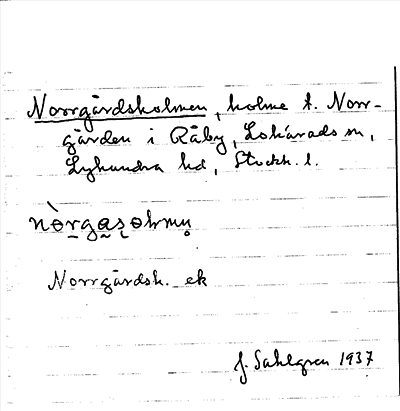 Norrgårdsholmen, holme t. Norr-
gården i Råby, Lohärads sn,
Lyhundra hd, Stockh. l.
Norrgårdsh. ek
J. Sahlgren 1937